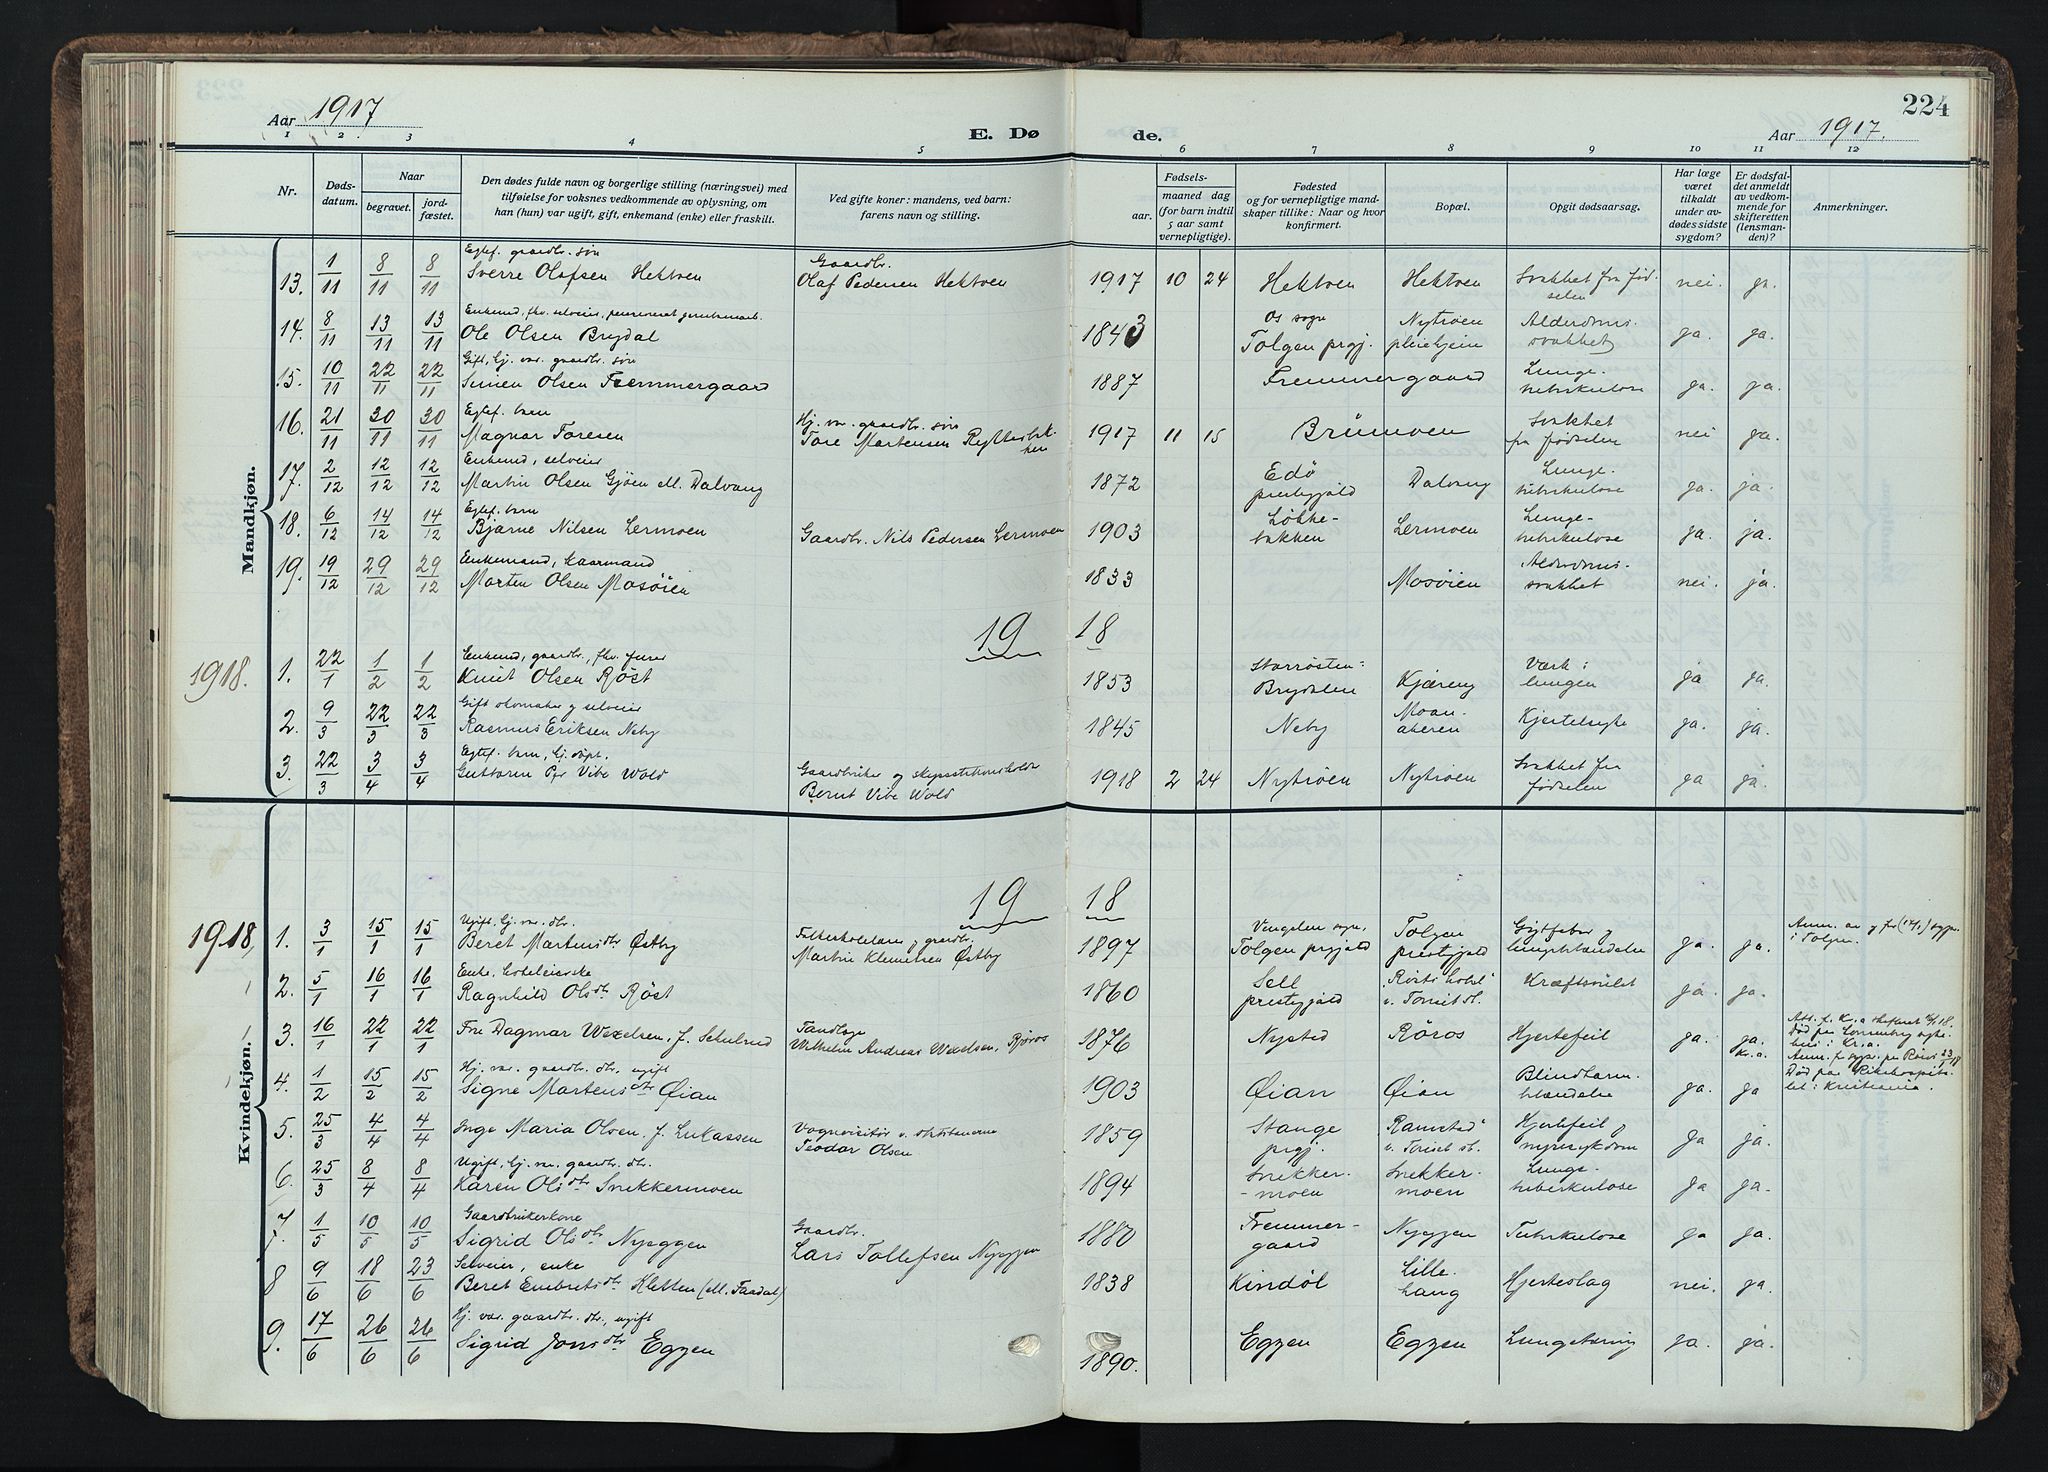 Aar 1917
E. Døde.
Aar 1917.
224
1 2. 3 4 5 6 7 8 9 10 11 12
Nr.
Døds-
datum.
Naar
begravet.
jord-
fæstet.
Den dødes fulde navn og borgerlige stilling (næringsvei) med
tilføielse for voksnes vedkommende av oplysning, om
han (hun) var ugift, gift, enkemand (enke) eller fraskilt.
Ved gifte koner: mandens, ved barn:
farens navn og stilling.
Fødsels-
aar.
maaned dag
(for barn indtil
5 aar samt
vernepligtige).
Fødested
og for vernepligtige mand-
skaper tillike: Naar og hvor
konfirmert.
Bopæl.
Opgit dødsaarsag.
Har læge
været
tilkaldt
under av-
dødes sidste
sygdom?
Er dødsfal-
det anmeldt
av vedkom-
mende for
skifteretten
(lensman-
den)?
Anmerkninger.
Mandkjøn.
13. 1/11 8/11 8/11 Egtef. gaardbr. søn
Sverre Olafsen Hektoen
Gaardbr.
Olaf Pedersen Hektoen
1917 10 24 Hektoen Hektoen Svakhet fra fød-
selen nei. ja.
14. 8/11 13/11 13/11 Enkemd, fhv. selveier, pensioneret
Ole Olsen Brydal
1843 Os sogn
Tolgen prgj. Nytrøen
pleiehjem Alderdoms-
svakhet ja. ja.
15. 10/11 22/11 22/11 Gift, hj. vær. gaardbr. søn
Simen Olsen Fremmergaard
1887 Fremmergaard Lunge-
tuberkulose ja. ja.
16. 21/11 30/11 30/11 Egtef. barn
Magnar Toresen
Hj. vær. gaardbr. søn
Tore Martensen
1917 11 15 Brümoen Svakhet
fra fødselen nei ja.
17. 2/12 12/12 12/12 Enkemd, selveier
Martin Olsen Gjøen ell. Dalvang
1872 Edø
prestegjæld Dalvang Lunge-
tuberkulose ja. ja.
18. 6/12 14/12 14/12 Egtef. barn
Bjarne Nilsen Lermoen
Gaardbr. Nils Pedersen Lermoen
1903 Løkke-
bakken Lermoen Lunge-
tuberkulose ja. ja.
19. 19/12 29/12 29/12 Enkemand, kaarmand
Morten Olsen Mosøien
1833 Mosøien Alderdoms-
svakhet nei. ja.
19 18
1918.
1. 22/1 1/2 1/2 Enkemd, gaardbr., fhv. furer
Knut Olsen Røst
1853 Storrøsten i
Brydalen Kjæreng Værk i
lungen ja ja.
2. 9/3 22/3 22/3 Gift skomaker og selveier
Rasmus Eriksen Neby
1845 Neby Moan-
akeren Kjertelsyke ja. ja.
3. 22/3 3/4 3/4 Egtef. barn, hj. døpt.
Guttorm Per Vibe Wold
Gaardbruker og skysstationsholder
Bernt Vibe Wold
1918 2 24 Nytrøen Nytrøen Svakhet fra
fødselen ja ja.
Kvindekjøn.
19 18
1918,
1. 3/1 15/1 15/1 Ugift, hj. vær. dtr.
Beret Martinsdtr Østby
Folkeskolelærer og gaardbr.
Martin Klemetsen Østby
1897 Vingelen sogn,
Tolgen prgjæld Tolgen
prestegjæld Gigtfeber og
lungebetændelse ja. ja.
i Tolgen.
2. 5/1 16/1 16/1 Enke, hoteleierske
Ragnhild Olsdtr Røst
1860 Sell
prestegjæld "Røsts hotel"
v. Tønset st. Kræftsvulst ja. ja.
3. 16/1 22/1 22/1 Fru Dagmar Wexelsen, f. Schulrud
Tandlæge
Wilhelm Andreas Wexelsen, Røros
1876 Nysted Røros Hjertefeil ja. ja.
Kr.a.
4. 1/2 15/2 15/2 Hj. vær. gaardbr. dtr. ugift
Signe Martensdtr Øian
1903 Øian Øian Blindtarm-
betændelse ja. ja
Død paa Rikshospita-
let i Kristiania.
5. 25/3 4/4 4/4 Inge Maria Olsen f. Lukassen
Vognvisitør v. statsbanerne
Teodor Olsen
1859 Stange
prgj. "Ramstad"
v. Tønset st. Hjertefeil og
nyresykdom ja ja.
6. 25/3 8/4 8/4 Ugift, hj. vær. gaardbr. dtr.
Karen Olsdtr Snekkermoen
1894 Snekker-
-moen Snekker-
moen Lunge-
tuberkulose ja ja-
7. 1/5 10/5 10/5 Gaardbrukerkone
Sigrid Olsdtr Nyeggen
Gaardbr.
Lars Tollefsen Nyeggen
1880 Fremmer-
gaard Nyeggen Tuberkulose ja ja.
8 9/6 18/6 23/6 Selveier, enke
Beret Embretsdtr Kletten (ell. Faadal)
1838 Kindøl Lille-
haug Hjerteslag nei. ja.
9. 17/6 26/6 26/6 Hj. vær. gaardbr. dtr., ugift
Sigrid Jonsdtr Eggen
1890. Eggen Eggen Lungetæring ja. ja.